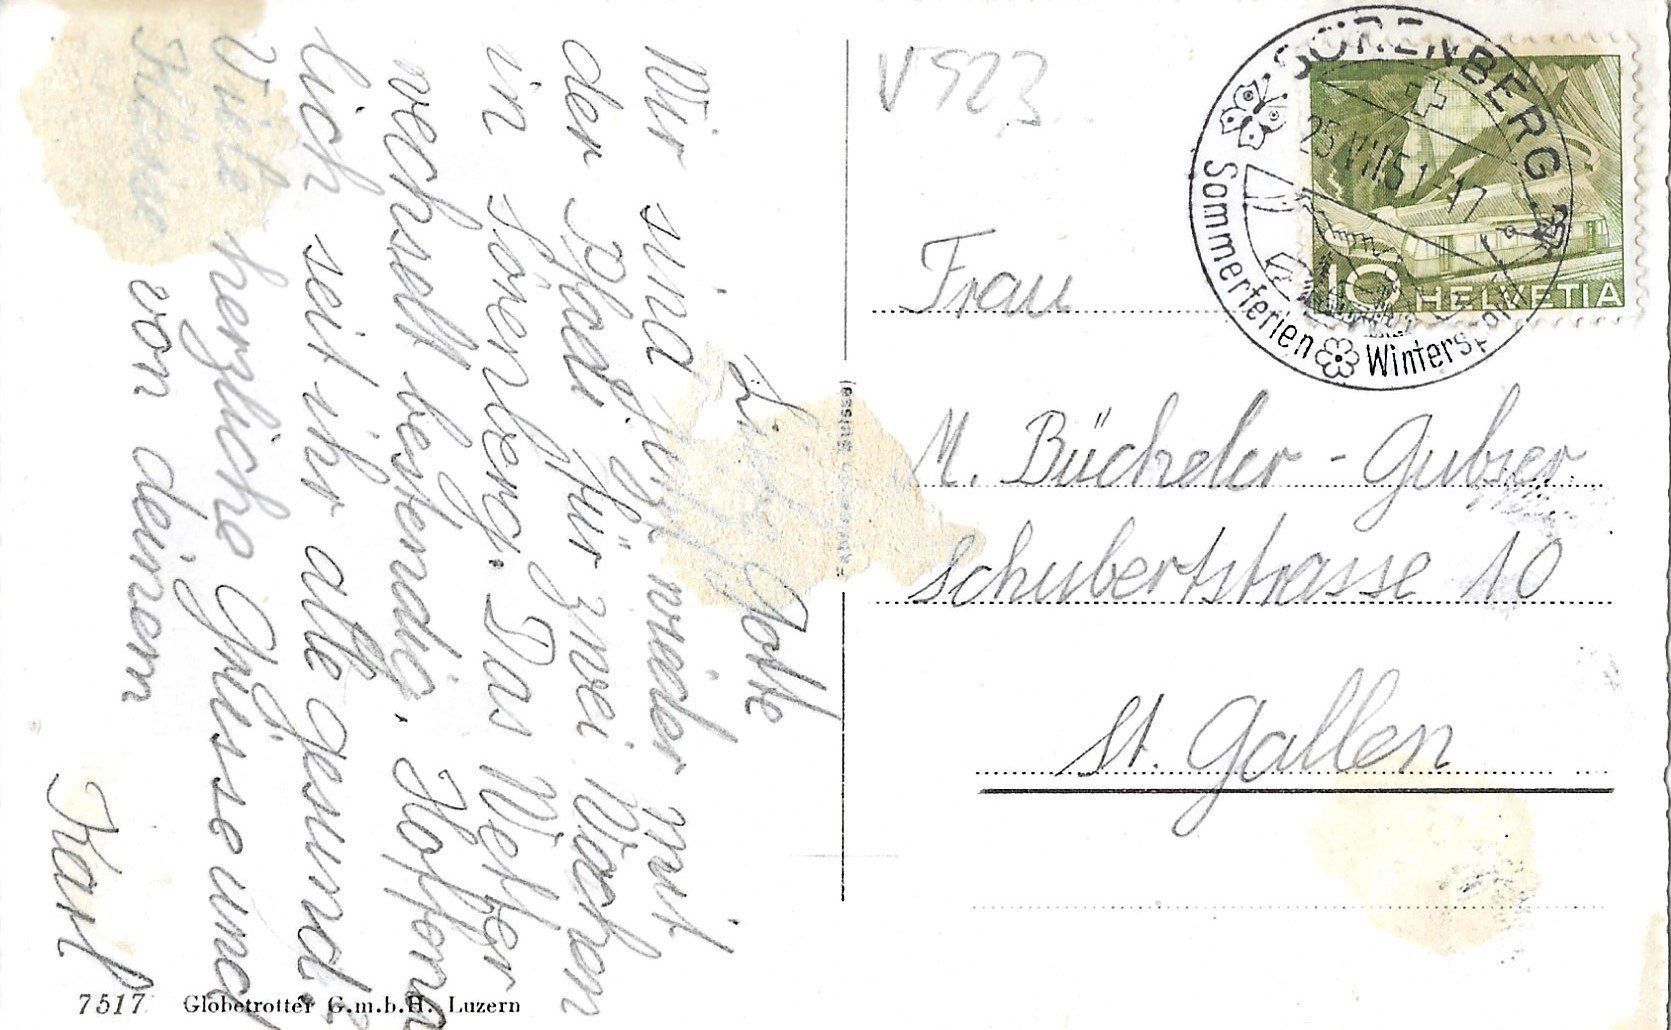 V 923
SÖRENBERG
25.VII.51-17
Sommerferien Wintersport
10 HELVETIA
Frau
M. Bücheler - Gubser
Schubertstrasse 10
St. Gallen
Liebe Gotte
Wir sind jetzt wieder mit
der Pfadi für zwei Wochen
in Sörenberg. Das Wetter
wechselt bestendig. Hoffend
lich seit ihr alle gesund.
Viele herzliche Grüsse und
Küsse von deinem
Karl
Suisse
7517 Globetrotter G.m.b.H. Luzern